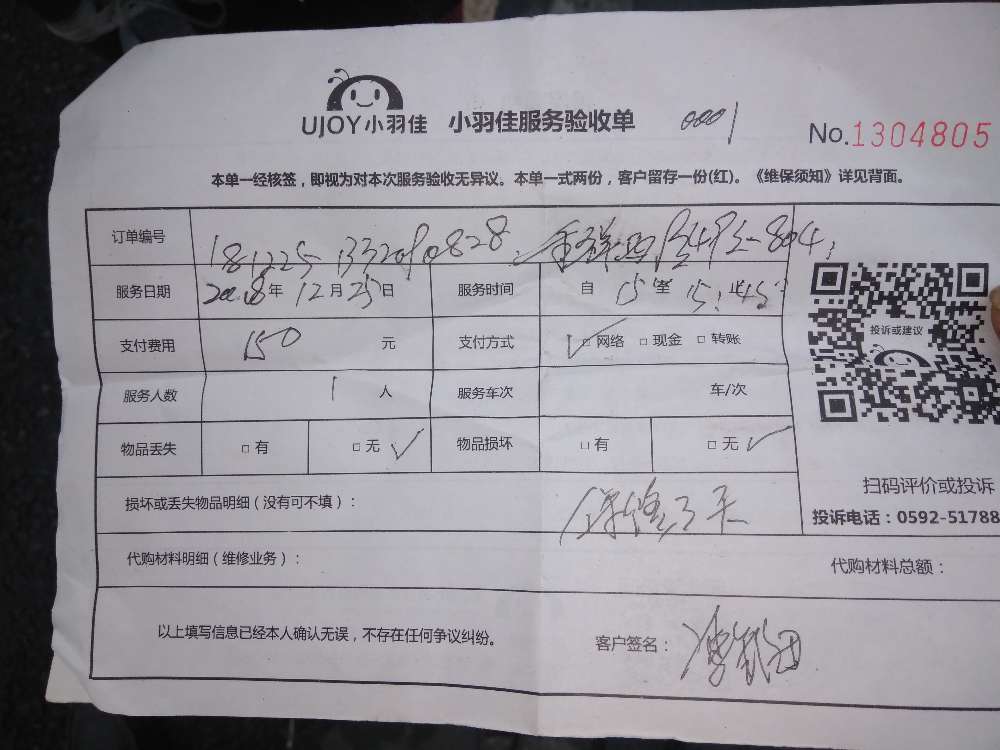 UJOY小羽佳 小羽佳服务验收单 0001 No.1304805
本单一经核签，即视为对本次服务验收无异议。本单一式两份，客户留存一份(红)。《维保须知》详见背面。
订单编号
服务日期 2018年12月25日 服务时间 自 15 至 15:45
支付费用 150 元 支付方式 □网络 □现金 □转账
投诉或建议
服务人数 1 人 服务车次 车/次
物品丢失 □有 □无 物品损坏 □有 □无
扫码评价或投诉
损坏或丢失物品明细（没有可不填）： 保修三天
投诉电话：0592-51788
代购材料明细（维修业务）： 代购材料总额：
以上填写信息已经本人确认无误，不存在任何争议纠纷。 客户签名：